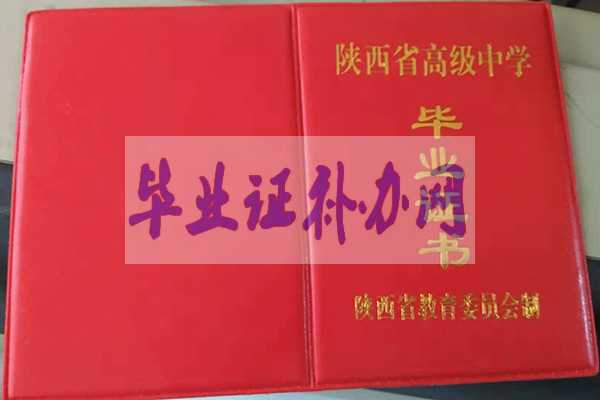 陕西省高级中学
毕业证书
毕业证补办网
陕西省教育委员会制